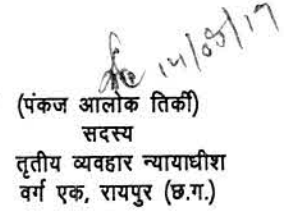 14/09/19
(पंकज आलोक तिर्की)
सदस्य
तृतीय व्यवहार न्यायाधीश
वर्ग एक, रायपुर (छ.ग.)